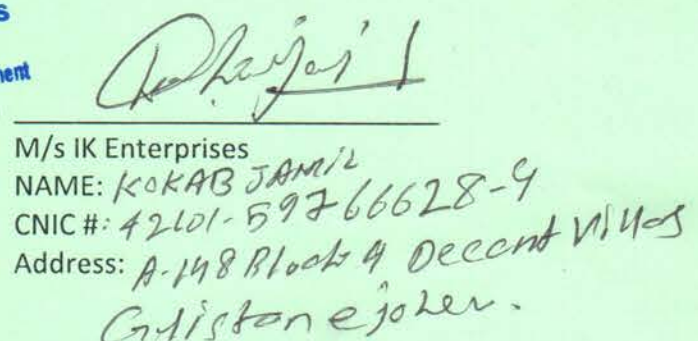 M/s IK Enterprises
NAME: KOKAB JAMIL
CNIC #: 42101-59766628-9
Address: A-148 Block 4 Decent Villas
Gulistan e joher.